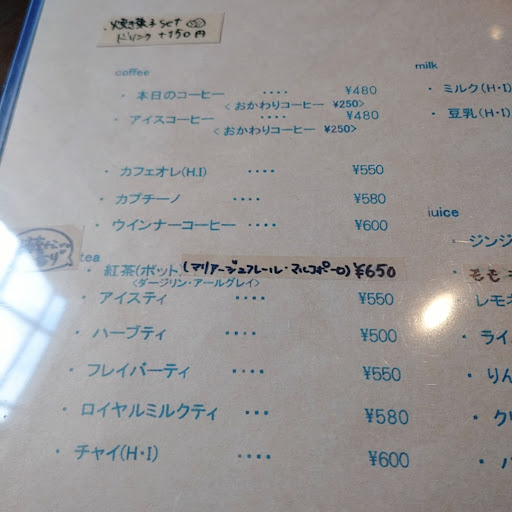 ・焼き菓子set
ドリンク +150円
coffee
・本日のコーヒー ‥‥ ¥480
<おかわりコーヒー ¥250>
・アイスコーヒー ‥‥ ¥480
<おかわりコーヒー ¥250>
・カフェオレ(H.I) ‥‥ ¥550
・カプチーノ ‥‥ ¥580
・ウインナーコーヒー ‥‥ ¥600
tea
・紅茶(ポット (マリアージュフレール・マルコポーロ) ¥650
<ダージリン・アールグレイ>
・アイスティ ‥‥ ¥550
・ハーブティ ‥‥ ¥500
・フレイバーティ ‥‥ ¥550
・ロイヤルミルクティ ‥・ ¥580
・チャイ(H・I) ‥‥ ¥600
milk
・ミルク(H・I)
・豆乳(H・I)
juice
ジンジ
・モモ
レモネ
・ライ
・りん
・ク